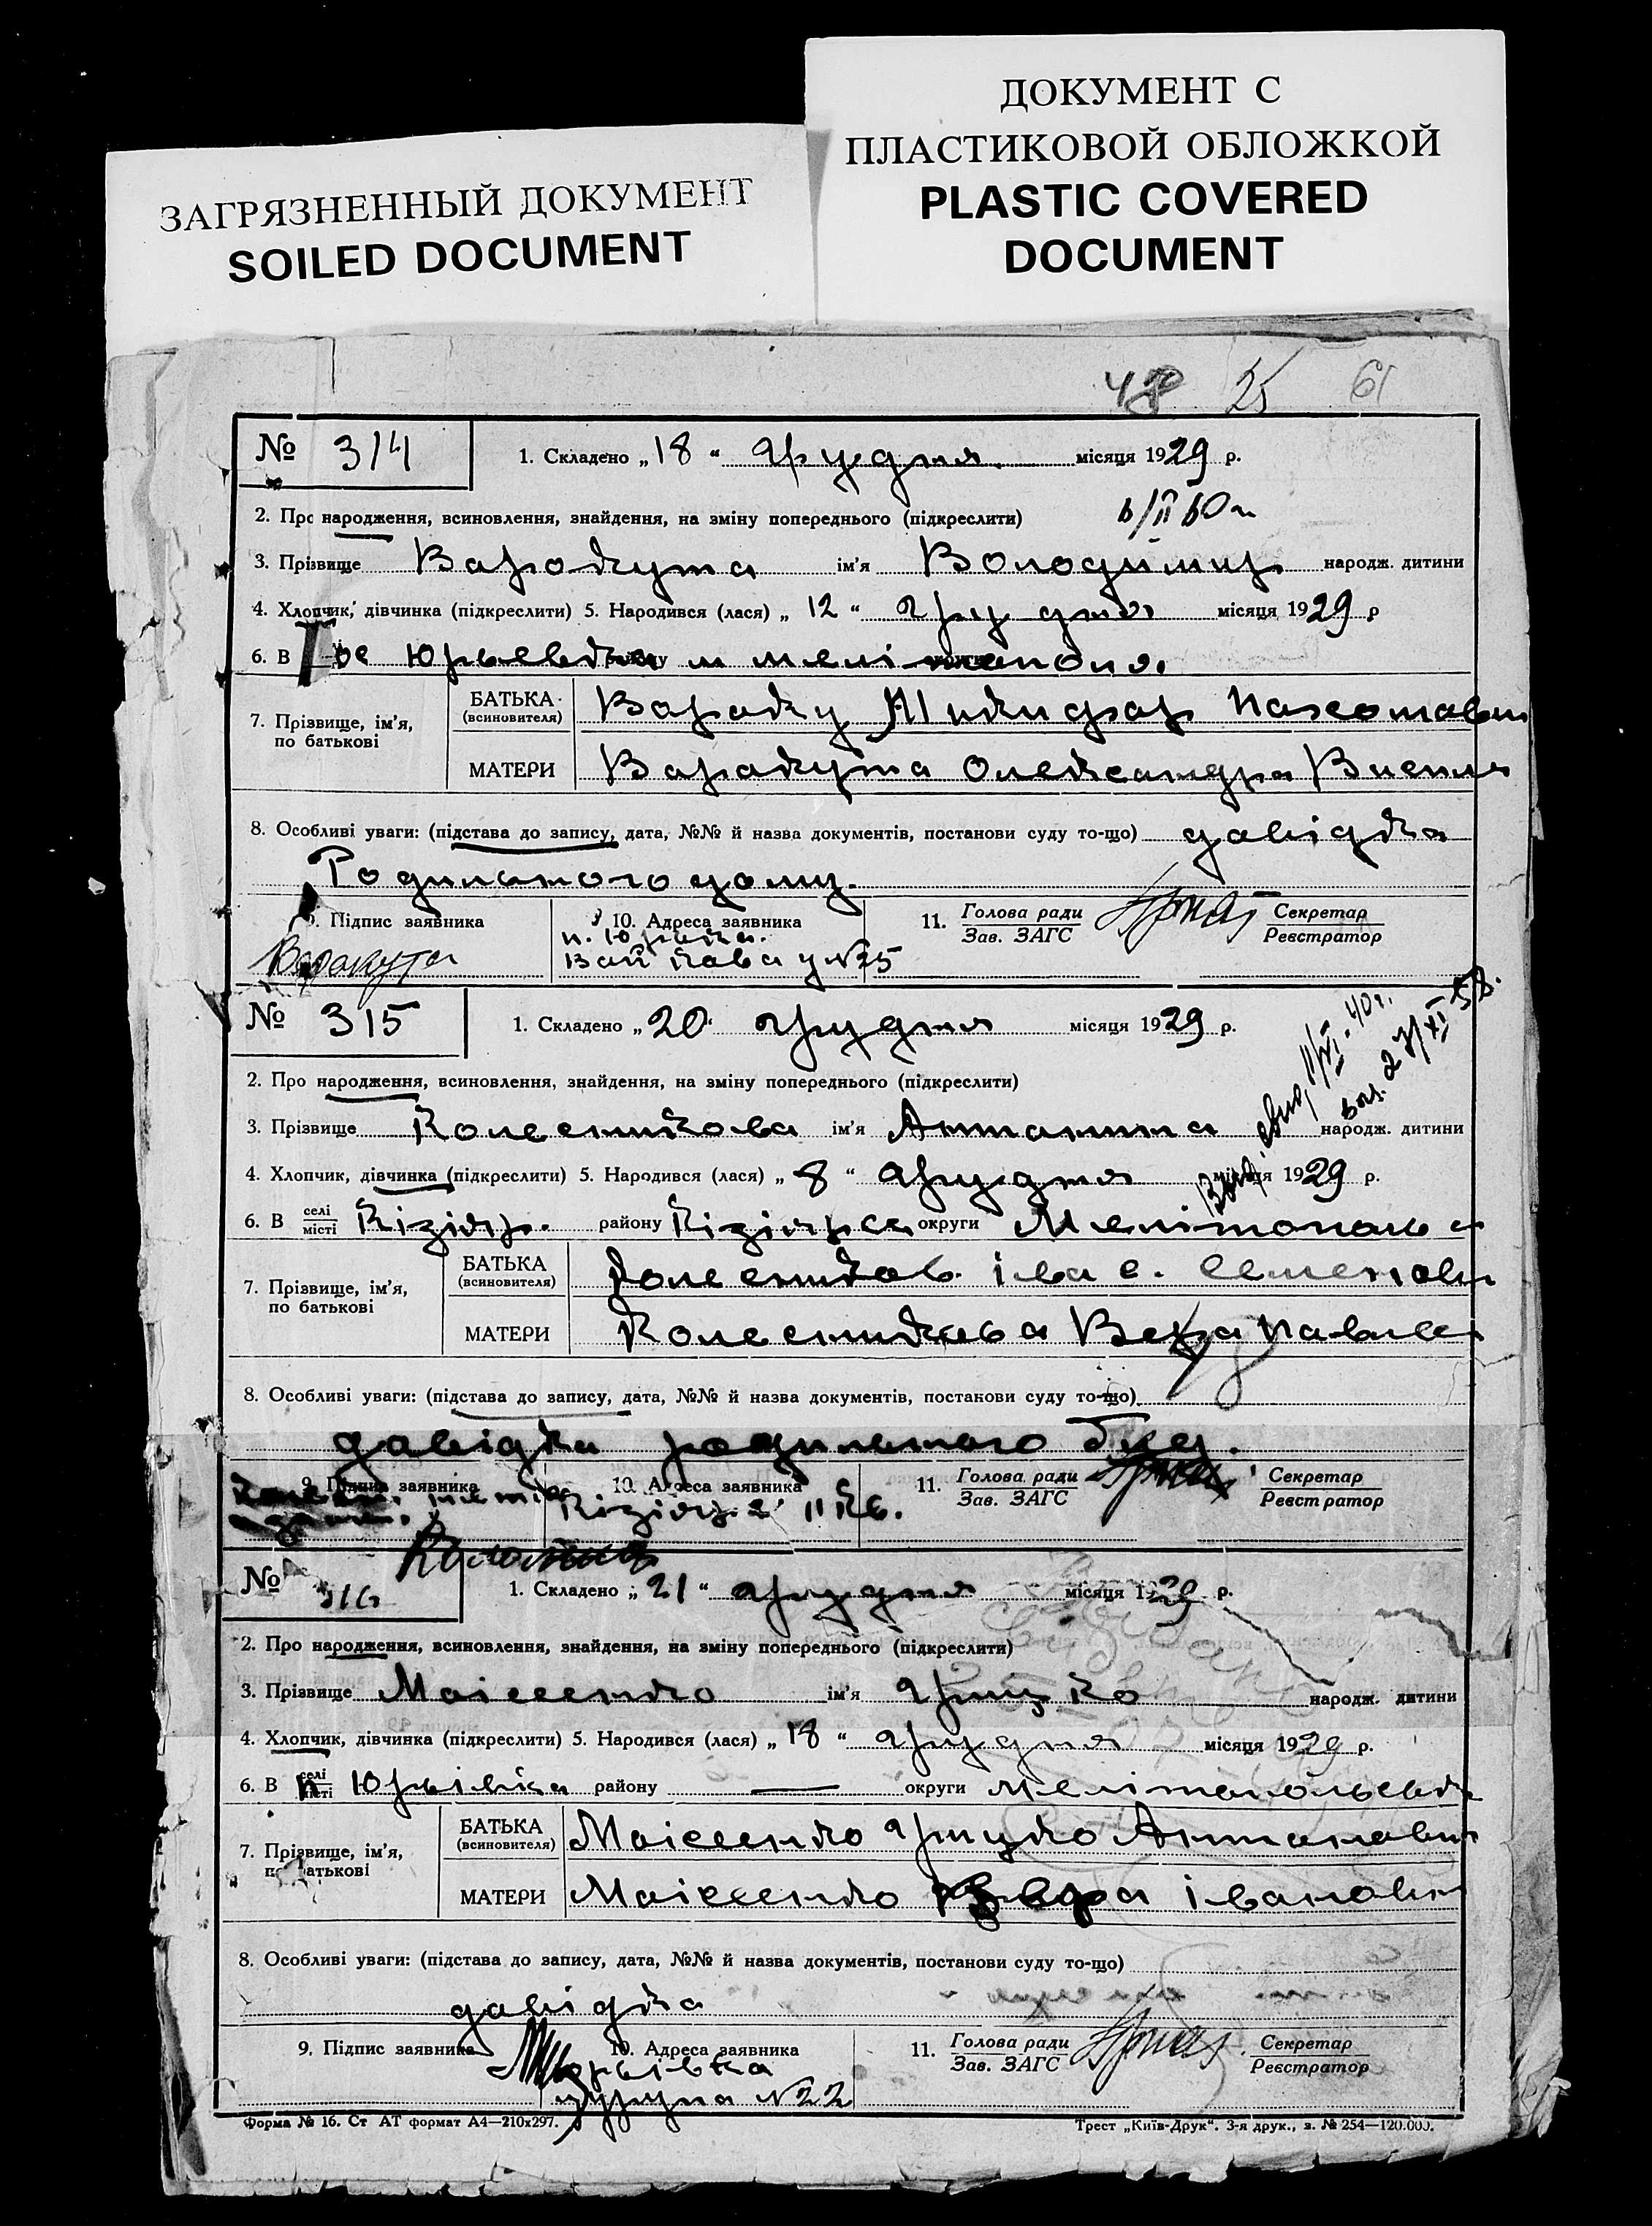 ЗАГРЯЗНЕННЫЙ ДОКУМЕНТ
SOILED DOCUMENT
ДОКУМЕНТ С
ПЛАСТИКОВОЙ ОБЛОЖКОЙ
PLASTIC COVERED
DOCUMENT
25 61
№ 314 1. Складено „18“ грудня місяця 1929 р.
2. Про народження, всиновлення, знайдення, на зміну попереднього (підкреслити)
3. Прізвище Варакута ім'я Володимир народж. дитини
4. Хлопчик, дівчинка (підкреслити) 5. Народився (лася) „12“ грудня місяця 1929 р
6. В
7. Прізвище, ім'я, по батькові БАТЬКА (всиновителя)
МАТЕРИ Варакута Олександра
8. Особливі уваги: (підстава до запису, дата, №№ й назва документів, постанови суду то-що) довідка
Родильного дому.
9. Підпис заявника 10. Адреса заявника 11. Голова ради Секретар
Зав. ЗАГС Реєстратор
Варакута
№ 315 1. Складено „20“ грудня місяця 1929 р.
2. Про народження, всиновлення, знайдення, на зміну попереднього (підкреслити)
3. Прізвище Колесникова ім'я Антонина народж. дитини
4. Хлопчик, дівчинка (підкреслити) 5. Народився (лася) „8“ грудня місяця 1929 р.
6. В селі місті Кізіяр. району Кізіярск округи Мелітопольс
7. Прізвище, ім'я, по батькові БАТЬКА (всиновителя) Колесников Семенови
МАТЕРИ Колесникова Вера Павлов
8. Особливі уваги: (підстава до запису, дата, №№ й назва документів, постанови суду то-що)
довідка родильного буд.
9. Підпис заявника 10. Адреса заявника 11. Голова ради Секретар
Зав. ЗАГС Реєстратор
Кізіяр
№ 316 1. Складено „21“ грудня місяця 1929 р.
2. Про народження, всиновлення, знайдення, на зміну попереднього (підкреслити)
3. Прізвище Маісеенко ім'я Грицко народж. дитини
4. Хлопчик, дівчинка (підкреслити) 5. Народився (лася) „18“ грудня місяця 1929 р.
6. В селі місті п. Юрьівка району — округи Мелітопольськ
7. Прізвище, ім'я, по батькові БАТЬКА (всиновителя) Маісеенко Грицко Антонович
МАТЕРИ Маісеенко Івановн
8. Особливі уваги: (підстава до запису, дата, №№ й назва документів, постанови суду то-що)
довідка
9. Підпис заявника 10. Адреса заявника 11. Голова ради Секретар
Зав. ЗАГС Реєстратор
Юрьівка
N22
Форма № 16. Ст АТ формат А4—210x297.
Трест „Київ-Друк“. 3-я друк., з. № 254—120.000.